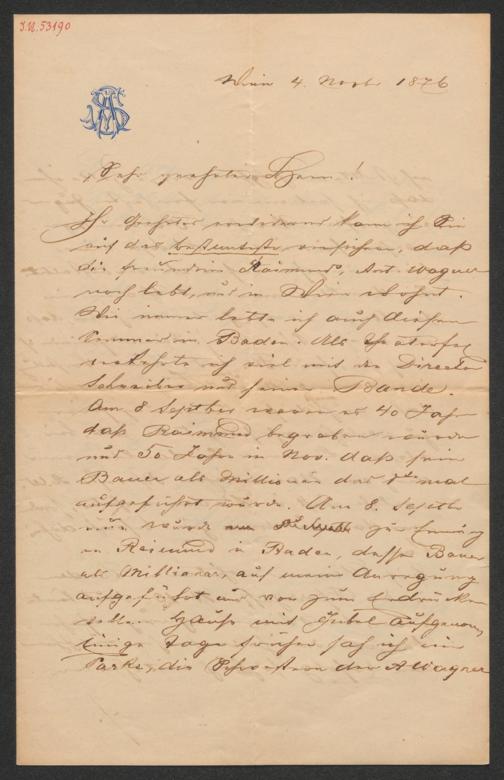 I.N. 53190
Wien 4. Novb 1876
Sehr geehrter Herr!
Ihr Geehrtes kann ich Sie
auf das bestimmteste versichern, daß
die Freundin Raimunds, Ant. Wagner
noch lebt, und in Wien wohnt.
Wie immer lebte ich auch diesen
Sommer in Baden. Als
verkehrte ich viel mit der Director
Schreiber und seiner Bande.
Am 8 Septber waren es 40 Jahr
daß Raimund begraben wurde
und 50 Jahre in Nov. daß sein
Bauer als Millionär das 1te mal
aufgeführt wurde. Am 8. Septb
nun wurde zur
an Raimund in Baden, dessen Bauer
als Millionär, auf meine Anregung
aufgeführt und von zum Erdrücken
vollen Hause mit Jubel aufgenom
Einige Tage früher sah ich im
Parke, die Schwestern der A Wagner